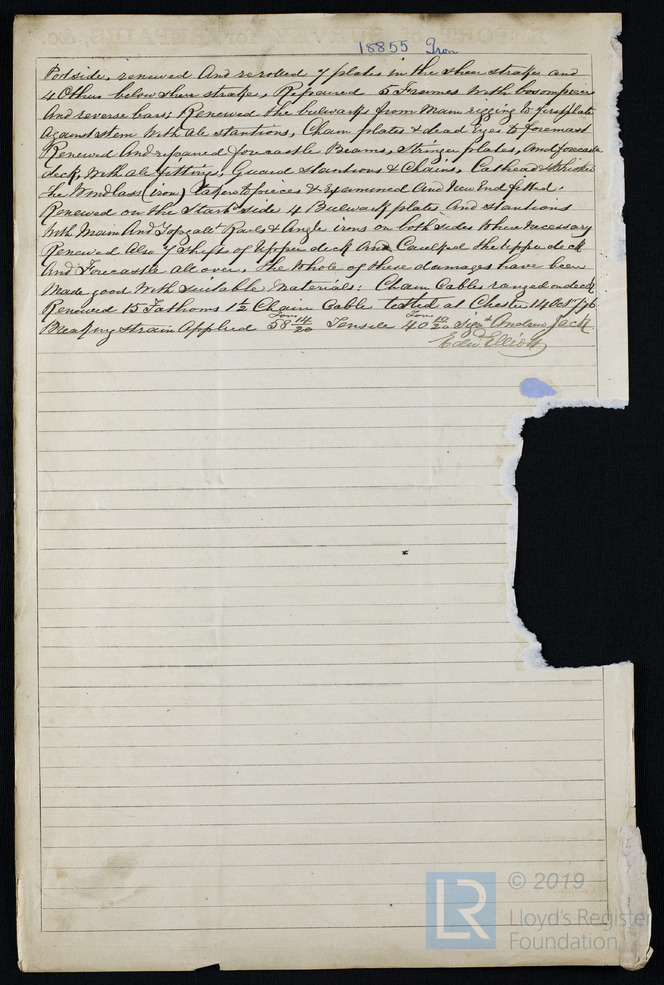 18855 Iron
Portside, renewed And rerolled 7 plates in the sheer strake and
4 Others below sheer strake, Repaired 5 Frames With bosom pieces
And reverse bars, Renewed the bulwarks from Main rigging to first plate
Against stem With all stantions, Chain plates & dead Eyes to foremast
Renewed And repaired forecastle Beams, Stringer plates, And forecastle
deck, With all fittings, Guard Stantions & Chains, Cathead & Whisker
The Windlass (iron) taken to pieces & Examined And New End fitted,
Renewed on the Starbd side 4 Bulwark plates And Stantions
With Main And Topgallt Rails & Angle irons on both sides where necessary
Renewed Also 7 Shifts of Upper deck And Caulked the upper deck
And Forecastle all over, The Whole of these damages have been
Made good With Suitable Materials: Chain Cables ranged on deck
Renewed 15 Fathoms 1½ Chain Cable tested at Chester 14 Oct /76
Breaking Strain Applied 58 14/20 Tons Tensile 40 10/20 Tons Signd Andrew Jack
Edwd Elliott
© 2019
LR Lloyd's Register
Foundation